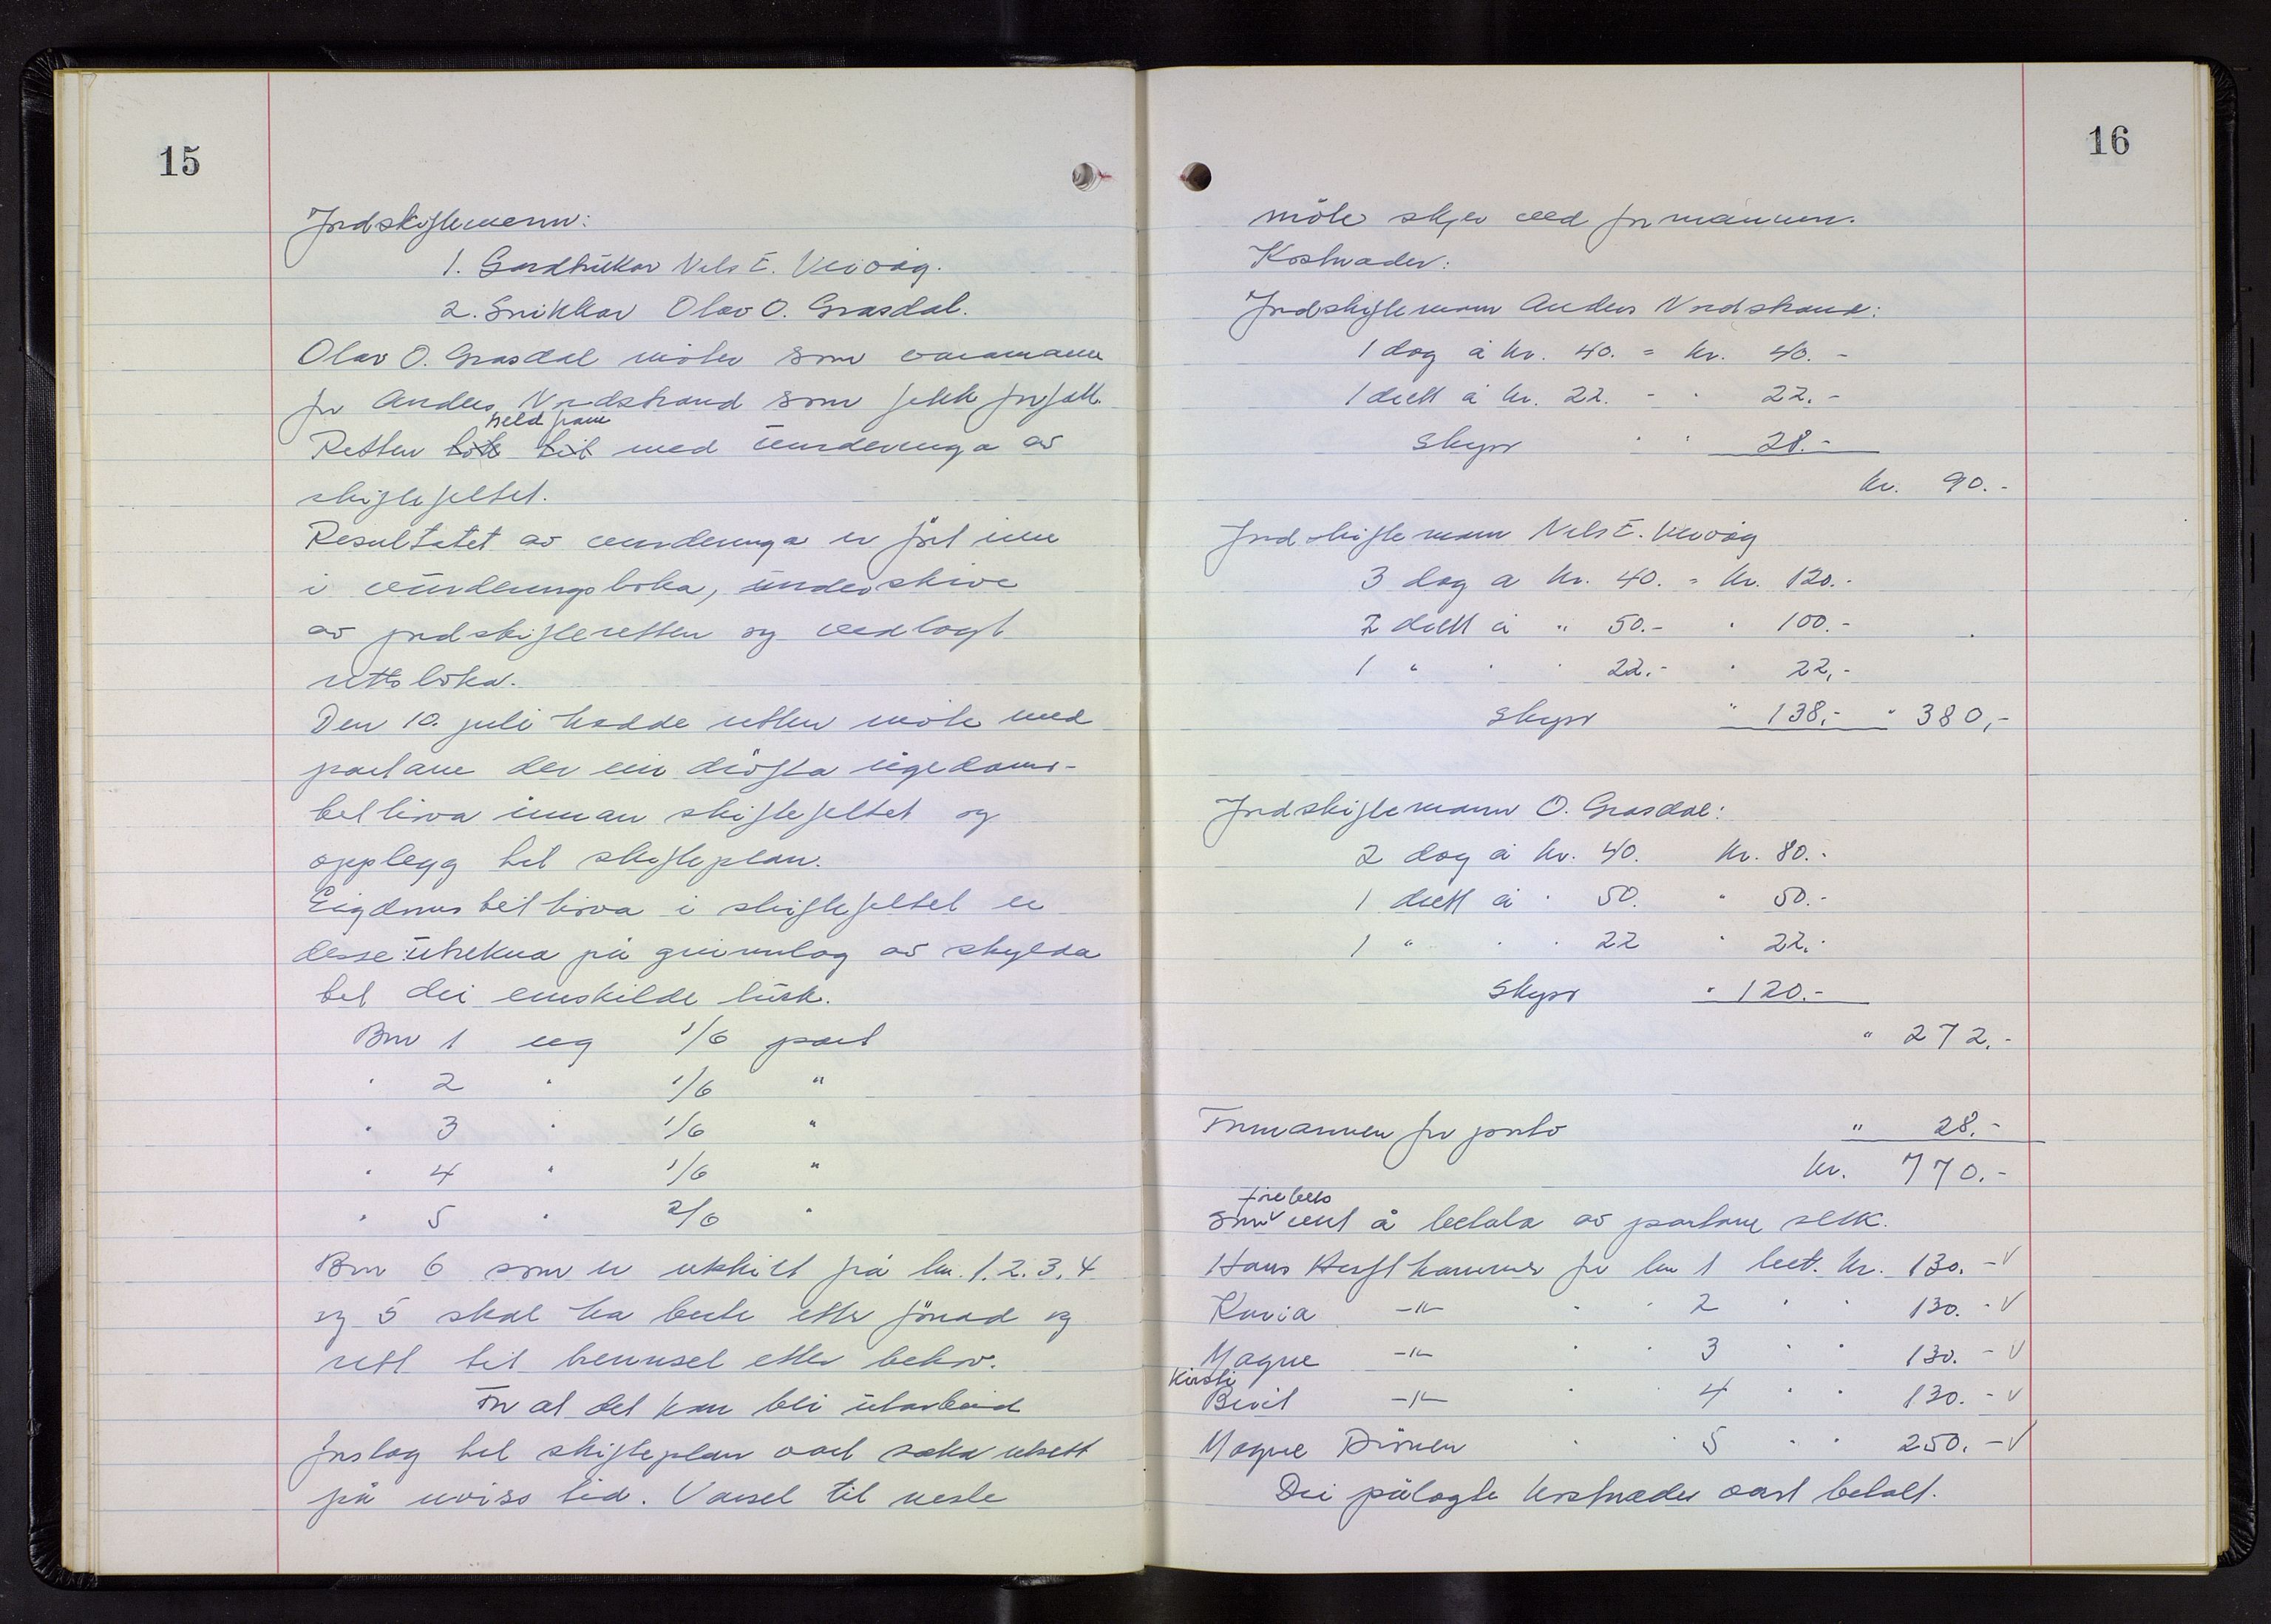 15
Jordskiftemenn:
1. Gardbrukar Nils E. Veivåg.
2. Snikkar Olav O. Grasdal.
Olav O. Grasdal møter som varamann
for Anders Nordstrand som fekk forfall.
held fram
Retten tok til med vurderinga av
skiftefeltet.
Resultatet av vurderinga er ført inn
i vurderingsboka, underskrive
av jordskifteretten og vedlagt
rettsboka.
Den 10. juli hadde retten møte med
partane der ein drøfta eigedoms-
tilhøva innan skiftefeltet og
opplegg til skifteplan.
Eigdomstilhøva i skiftefeltet er
desse utrekna på grunnlag av skylda
til dei einskilde bruk.
Bnr 1 eig 1/6 part
" 2 " 1/6 "
" 3 " 1/6 "
" 4 " 1/6 "
" 5 " 2/6 "
Bnr 6 som er utskilt frå bnr. 1. 2. 3. 4
og 5 skal ha beite etter fönad og
rett til brennsel etter behov.
For at det kan bli utarbeid
forslag til skifteplan vart saka utsett
på uviss tid. Varsel til neste
16
møte skjer ved formannen.
Kostnader:
Jordskiftemann Anders Nordstrand:
1 dag à kr. 40. = kr. 40. -
1 diett à kr. 22. - " 22. -
Skyss " " 28. -
kr. 90. -
Jordskiftemann Nils E. Veivåg
3 dag a kr. 40. = kr. 120. -
2 diett à " 50. - " 100. -
1 " " " 22. - " 22, -
Skyss " 138, - " 380, -
Jordskiftemann O. Grasdal:
2 dag à kr. 40. kr. 80. -
1 diett à " 50. " 50. -
1 " " " 22 " 22. -
Skyss " 120. -
" 272. -
Formannen for porto " 28. -
kr. 770. -
som vert å betala av partane slik.
Hans for bnr 1 bet. kr. 130. - V
-"- " " 2 " " 130. - V
Magne -"- " " 3 " " 130. - V
Kirsti
-"- " " 4 " " 130. - V
Magne " " 5 " " 250. - V
Dei pålagte kostnader vart betalt.